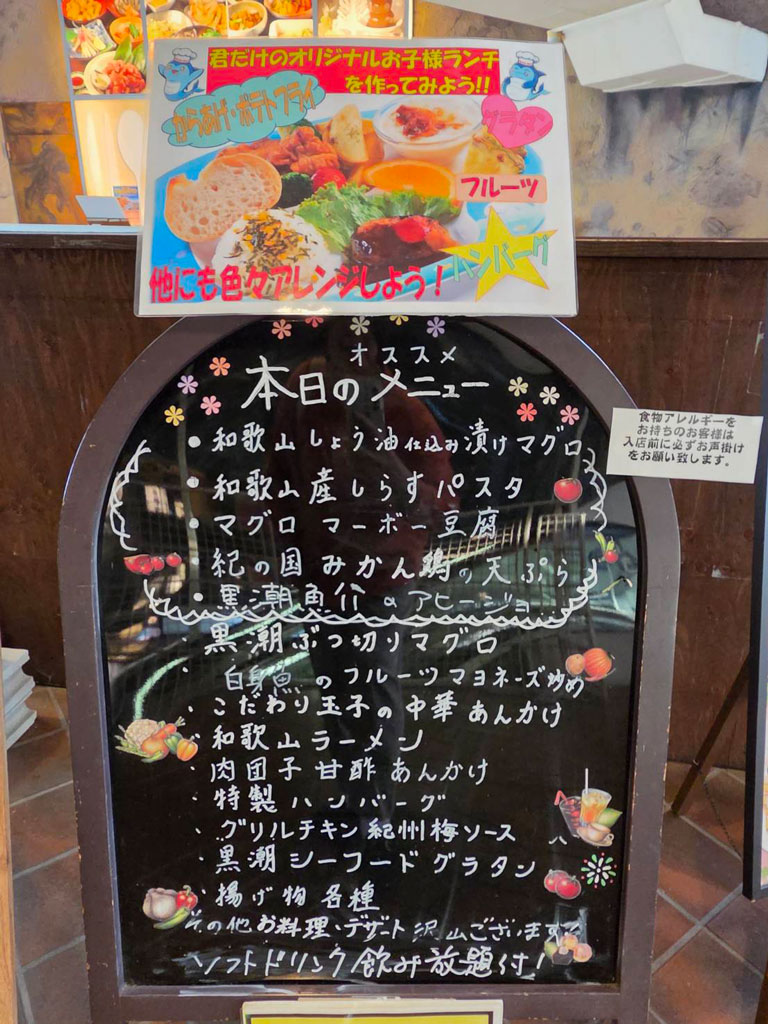 君だけのオリジナルお子様ランチ
を作ってみよう!!
からあげ・ポテトフライ
グラタン
フルーツ
ハンバーグ
他にも色々アレンジしよう!
オススメ
本日のメニュー
食物アレルギーを
お持ちのお客様は
入店前に必ずお声掛け
をお願い致します。
• 和歌山しょう油仕込み漬けマグロ
• 和歌山産しらすパスタ
• マグロマーボー豆腐
・紀の国みかん鶏の天ぷら
• 黒潮魚介のアヒージョ
・黒潮ぶつ切りマグロ
・白身魚のフルーツマヨネーズ炒め
・こだわり玉子の中華あんかけ
・和歌山ラーメン
・肉団子甘酢あんかけ
・特製ハンバーグ
・グリルチキン紀州梅ソース
・黒潮シーフードグラタン
・揚げ物各種
その他お料理・デザート沢山ございます
ソフトドリンク飲み放題付!